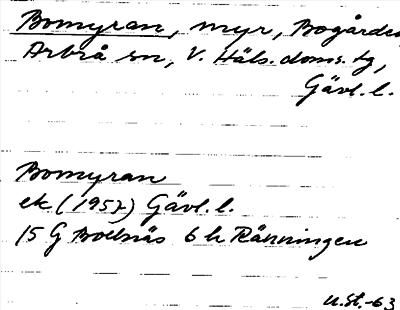 Bomyran, myr, Bogården,
Arbrå sn, V. Häls. doms. tg,
Gävl. l.
Bomyran
ek (1957) Gävl. l.
15 G Bollnäs 6 h Ränningen
U.St.-63